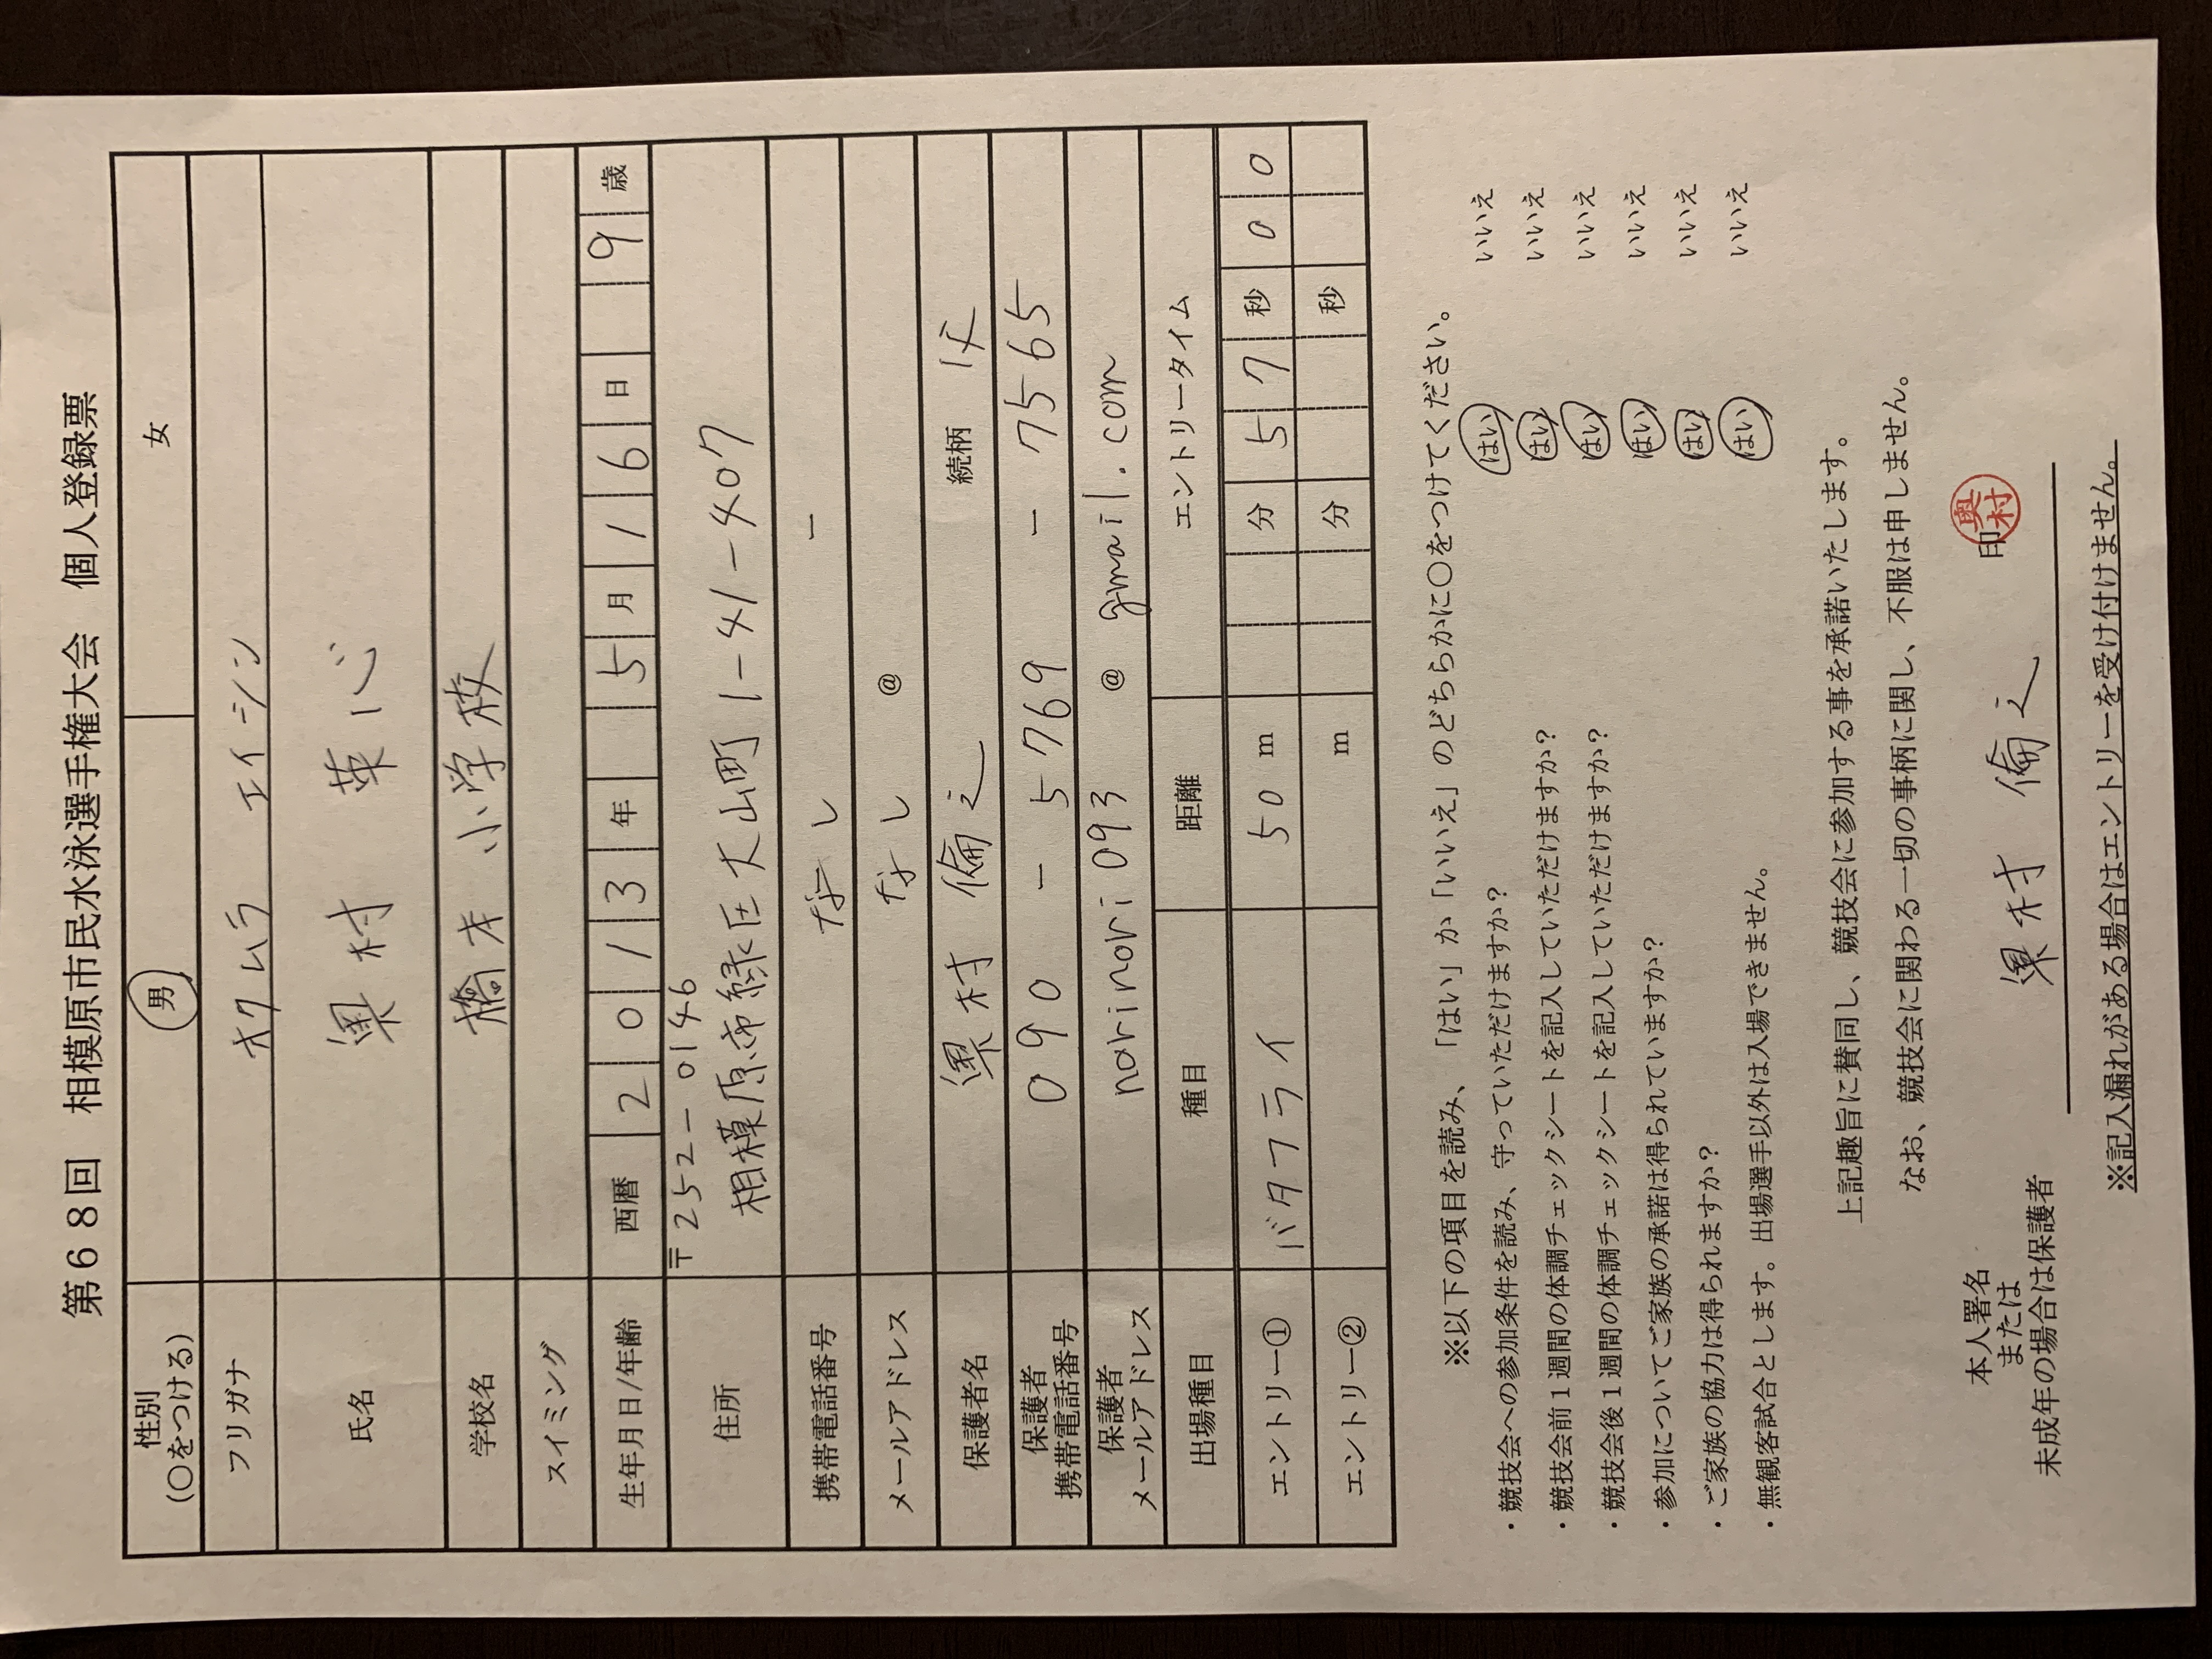 第６８回　相模原市民水泳選手権大会　個人登録票
性別
（○をつける） 男 女
フリガナ オクムラ エイシン
氏名 奥村 英心
学校名 橋本小学校
スイミング
生年月日/年齢 西暦 2013年 5月16日 9歳
住所 〒252-0146
相模原市緑区大山町1-41-407
携帯電話番号 なし －
メールアドレス なし @
保護者名 奥村 倫之 続柄 父
保護者
携帯電話番号 090 － 5769 － 7565
保護者
メールアドレス norinori093 @ gmail.com
出場種目 種目 距離 エントリータイム
エントリー① バタフライ 50 m 分 57 秒 00
エントリー② m 分 秒
※以下の項目を読み、「はい」か「いいえ」のどちらかに○をつけてください。
・競技会への参加条件を読み、守っていただけますか？ はい いいえ
・競技会前１週間の体調チェックシートを記入していただけますか？ はい いいえ
・競技会後１週間の体調チェックシートを記入していただけますか？ はい いいえ
・参加についてご家族の承諾は得られていますか？ はい いいえ
・ご家族の協力は得られますか？ はい いいえ
・無観客試合とします。出場選手以外は入場できません。 はい いいえ
上記趣旨に賛同し、競技会に参加する事を承諾いたします。
なお、競技会に関わる一切の事柄に関し、不服は申しません。
本人署名
または
未成年の場合は保護者 奥村 倫之 印 奥村
※記入漏れがある場合はエントリーを受け付けません。